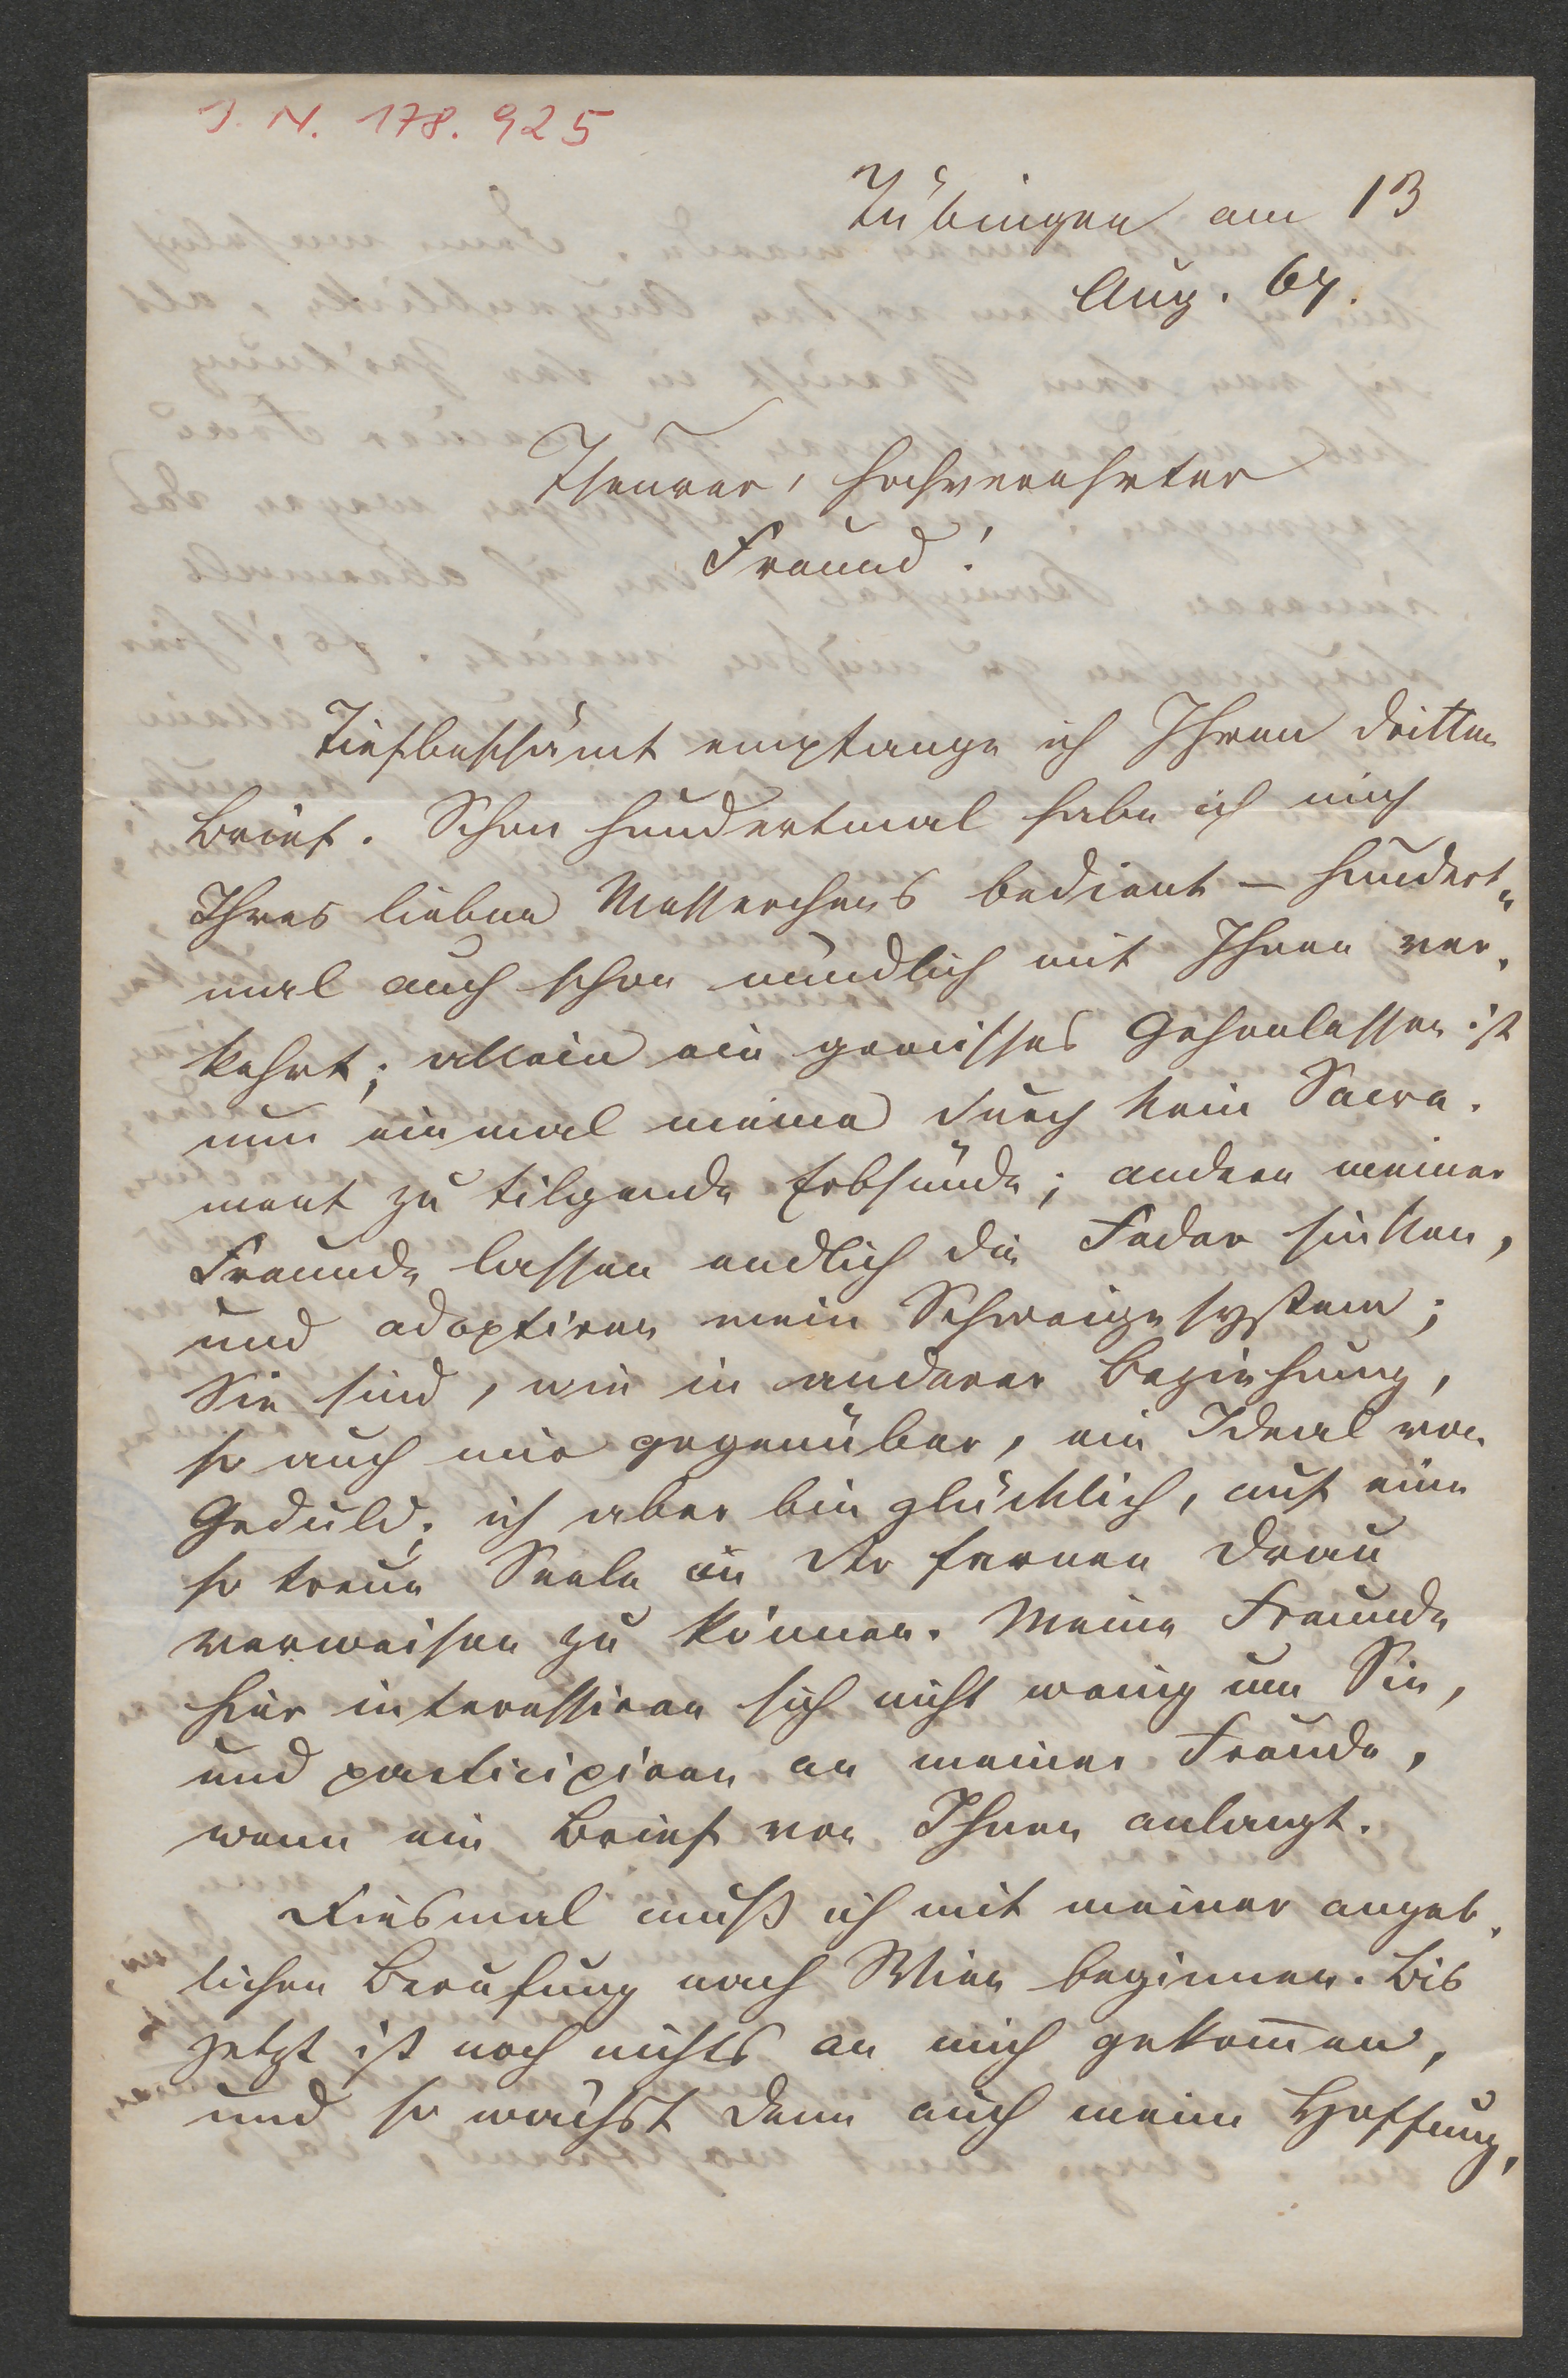 J. N. 178.925
Tübingen am 13
Aug. 67.
Theurer, hochverehrter
Freund!
Tiefbeschämt empfange ich Ihren dritten
Brief. Schon hundertmal habe ich mich
Ihres lieben Messerchens bedient – hundert-
mal auch schon mündlich mit Ihnen ver-
kehrt; allein ein gewisses Gehenlassen ist
nun einmal meine durch kein Sacra-
ment zu tilgende Erbsünde; andere meiner
Freunde lassen endlich die Feder sinken,
und adoptiren mein Schweigesystem;
Sie sind, wie in anderer Beziehung,
so auch mir gegenüber, ein Ideal von
Geduld; ich aber bin glücklich, auf eine
so treue Seele an der fernen Drau
verweisen zu können. Meine Freunde
hier interessiren sich nicht wenig um Sie,
und participiren an meiner Freude,
wenn ein Brief von Ihnen anlangt.
Diesmal muß ich mit meiner angeb-
lichen Berufung nach Wien beginnen. Bis
jetzt ist noch nichts an mich gekom̄en,
und so wächst denn auch meine Hoffnung,